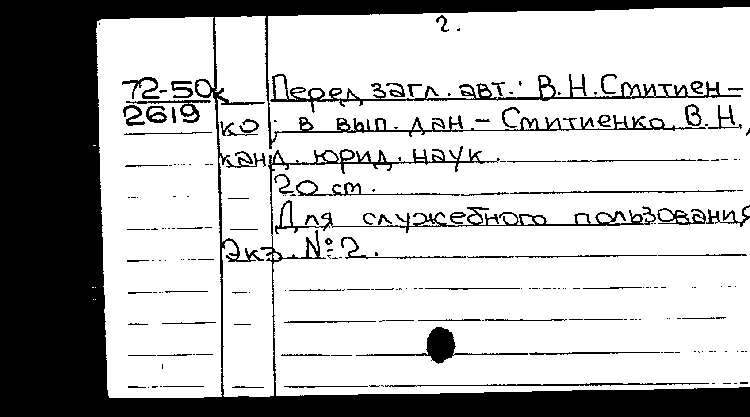 2.
72-50к Перед загл. авт.: В.Н.Смитиен-
2619 ко ; в вып. дан. - Смитиенко В.Н.,
канд. юрид. наук.
20 см.
Для служебного пользования
Экз. № 2.